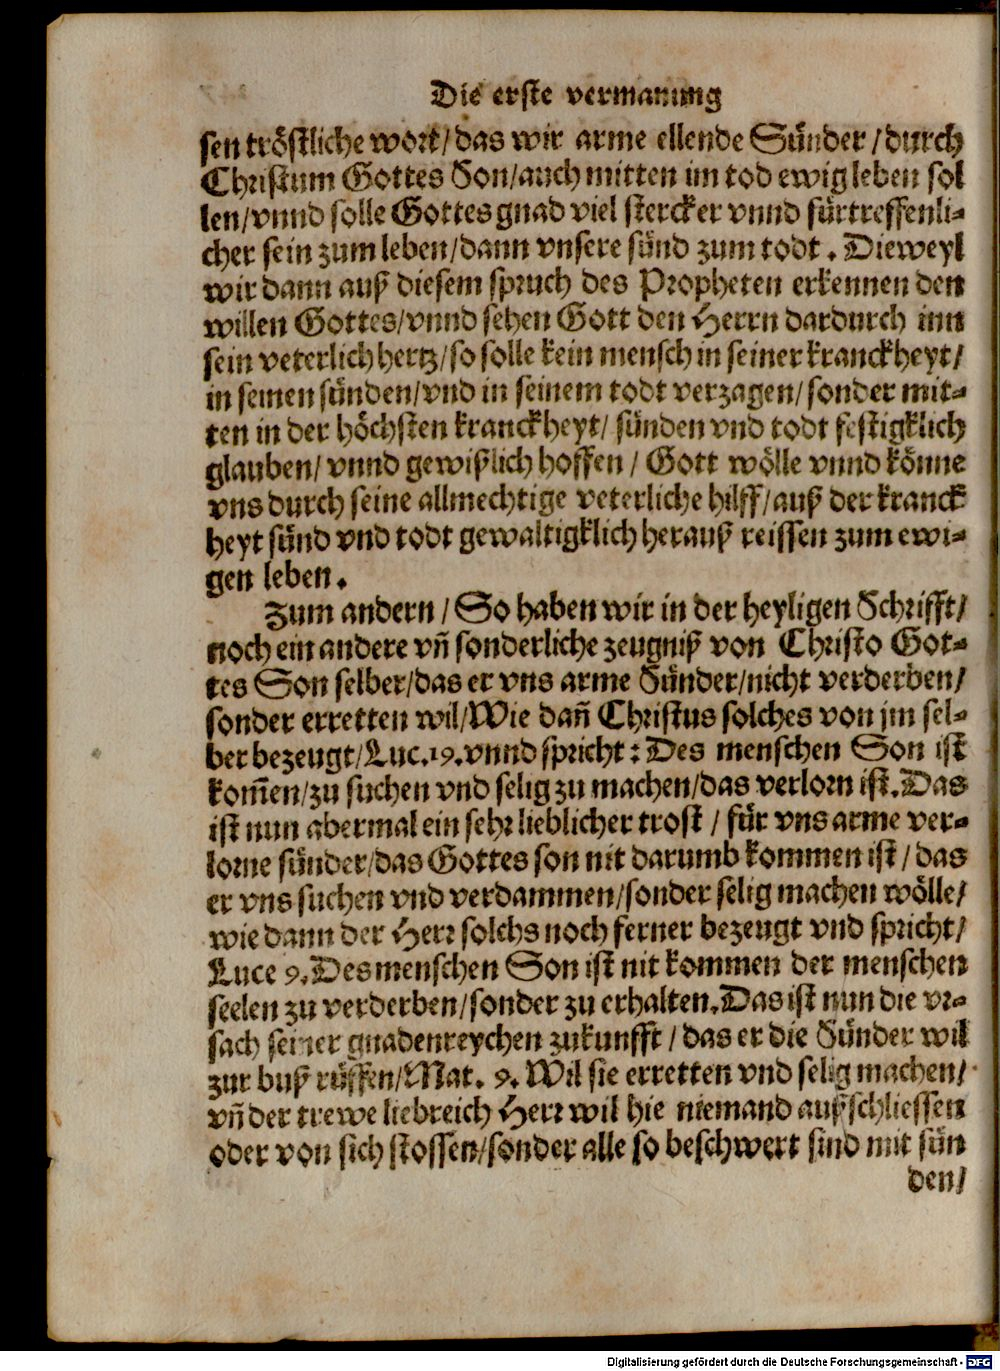 Die erste vermanung
sen tröstliche wort/das wir arme ellende Sünder/durch
Christum Gottes Son/auch mitten im tod ewig leben sol
len/vnnd solle Gottes gnad viel stercker vnnd fürtreffenli-
cher sein zum leben/dann vnsere sünd zum todt. Dieweyl
wir dann auß diesem spruch des Propheten erkennen den
willen Gottes/vnnd sehen Gott den Herrn dardurch inn
sein veterlich hertz/so solle kein mensch in seiner kranckheyt/
in seinen sünden/vnd in seinem todt verzagen/sonder mit-
ten in der höchsten kranckheyt/sünden vnd todt festigklich
glauben/vnnd gewißlich hoffen/Gott wölle vnnd könne
vns durch seine allmechtige veterliche hilff/auß der kranck
heyt sünd vnd todt gewaltigklich herauß reissen zum ewi-
gen leben.
Zum andern/So haben wir in der heyligen Schrifft/
noch ein andere vn̄ sonderliche zeugniß von Christo Got-
tes Son selber/das er vns arme Sünder/nicht verderben/
sonder erretten wil/Wie dañ Christus solches von jm sel-
ber bezeugt/Luc.19.vnnd spricht: Des menschen Son ist
kom̄en/zu suchen vnd selig zu machen/das verlorn ist.Das
ist nun abermal ein sehr lieblicher trost/für vns arme ver-
lorne sünder/das Gottes son nit darumb kommen ist/das
er vns suchen vnd verdammen/sonder selig machen wölle/
wie dann der Herr solchs noch ferner bezeugt vnd spricht/
Luce 9.Des menschen Son ist nit kommen der menschen
seelen zu verderben/sonder zu erhalten.Das ist nun die vr-
sach seiner gnadenreychen zukunfft/das er die Sünder wil
zur buß rüffen/Mat. 9. Wil sie erretten vnd selig machen/
vn̄ der trewe liebreich Herr wil hie niemand außschliessen
oder von sich stossen/sonder alle so beschwert sind mit sün
den/
Digitalisierung gefördert durch die Deutsche Forschungsgemeinschaft - DFG